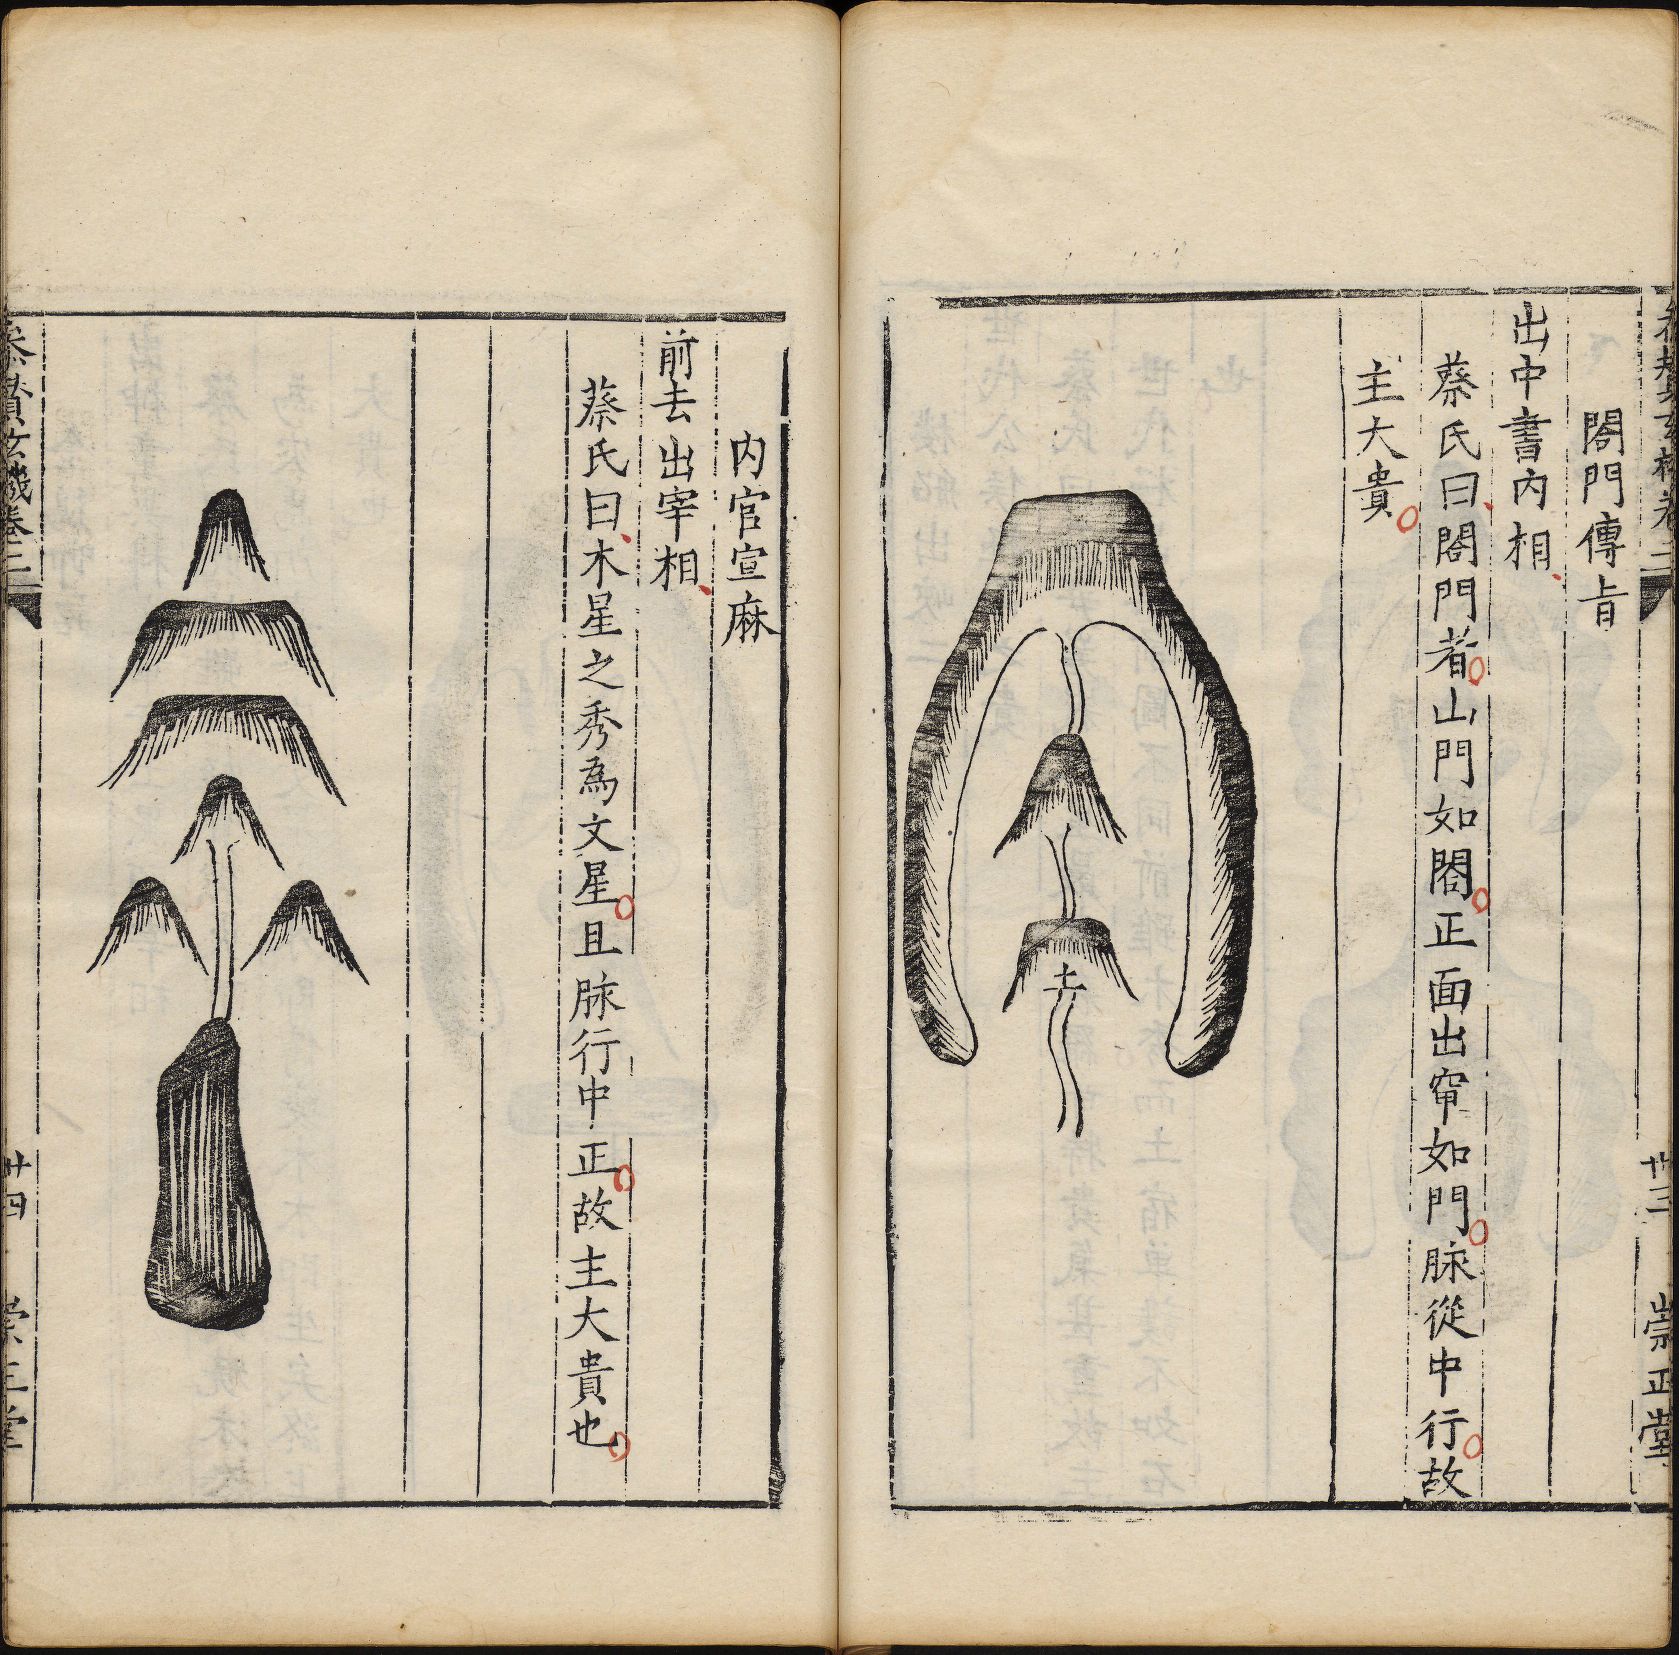 閤門傳㫖
出中書内相
蔡氏曰閤門者山門如閤正面出窜如門脉從中行故
主大貴
卅三
崇正堂
内官宣麻
前去出宰相
蔡氏曰木星之秀為文星且脉行中正故主大貴也
玄機卷二
卅四
崇正堂